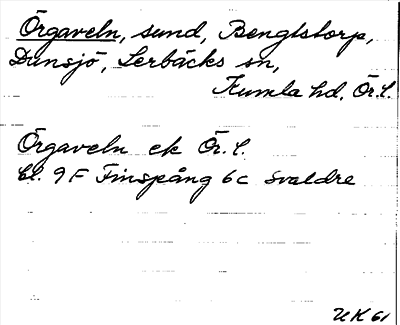 Örgaveln, sund, Bengtstorp,
Dunsjö, Lerbäcks sn,
Kumla hd, Ör. l.
Örgaveln ek Ör. l.
bl. 9 F Finspång 6c Svaldre
UK 61